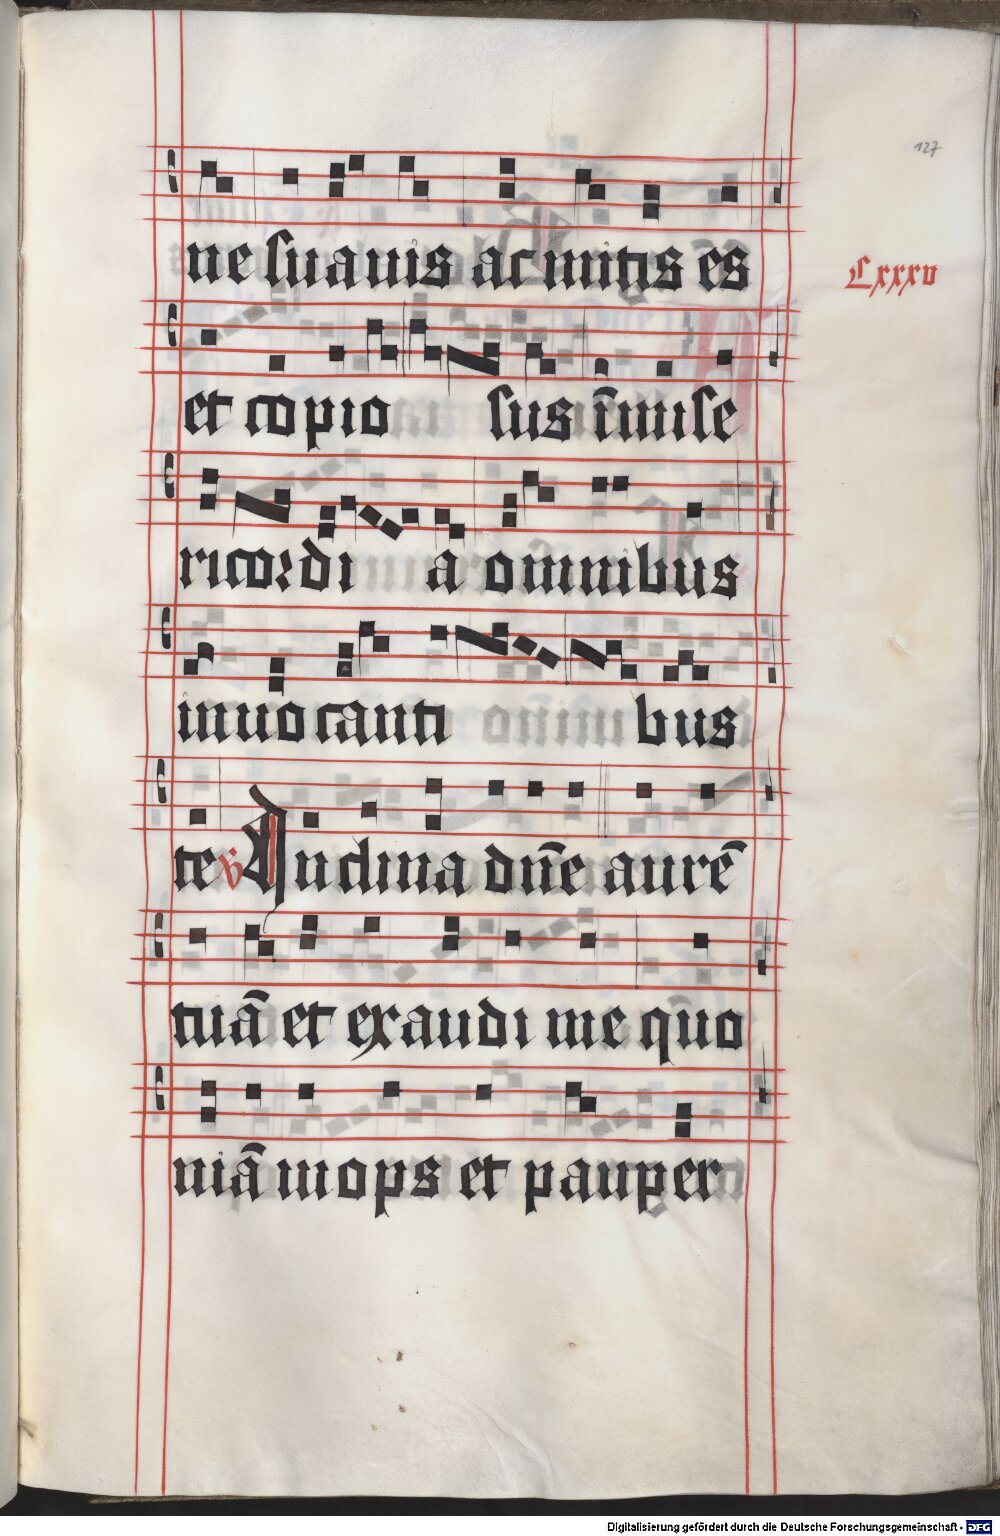 127
ne suauis ac mitis es
Cxxxv
et copio sus ī mise
ricordi a omnibus
inuocanti bus
te ℣ Inclina dn̄e aurē
tuā et exaudi me qn̄o
niā inops et pauper
Digitalisierung gefördert durch die Deutsche Forschungsgemeinschaft - DFG